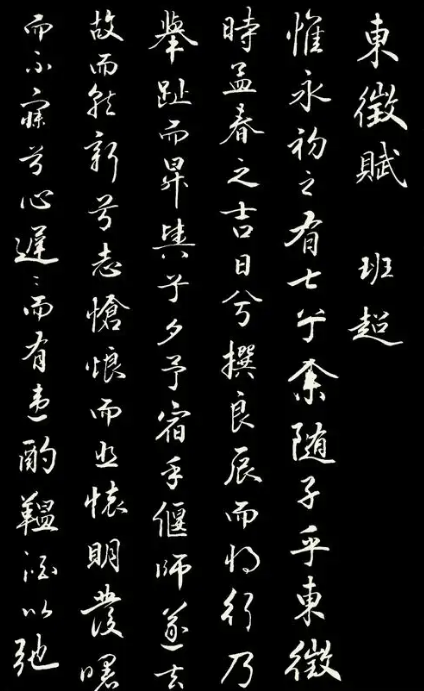 東徵賦 班超
惟永初之有七兮余随子乎東徵
時孟春之吉日兮撰良辰而将行乃
舉趾而昇輿兮夕予宿乎偃師遂去
故而就新兮志愴悢而懷明發曙
而不寐兮心遲〻而有違酌酒以弛